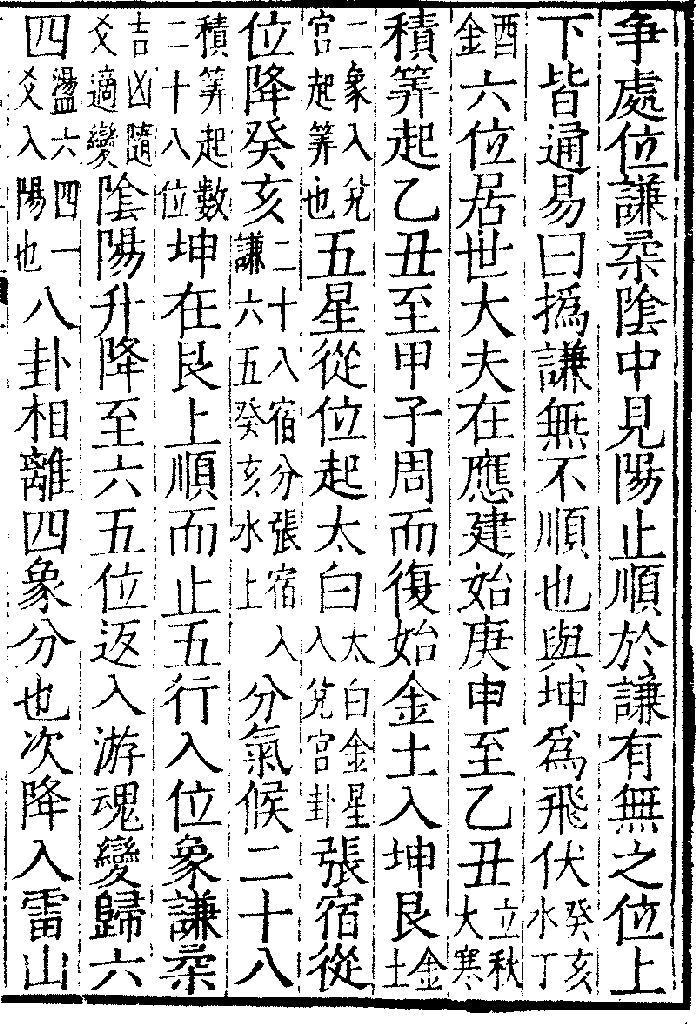 争處位謙柔隂中見陽止順於謙有無之位上
下皆通易曰撝謙無不順也與坤爲飛伏癸亥水丁
酉金六位居世大夫在應建始庚申至乙丑立秋大寒
積筭起乙丑至甲子周而復始金土入坤艮金土
二象入兌宫起筭也五星從位起太白太白金星入兌宫卦張宿從
位降癸亥二十八宿分張宿入謙六五癸亥水上分氣候二十八
積筭起數二十八位坤在艮上順而止五行入位象謙柔
吉凶隨爻適變隂陽升降至六五位返入游魂變歸六
四盪六四一爻入陽也八卦相離四象分也次降入雷山